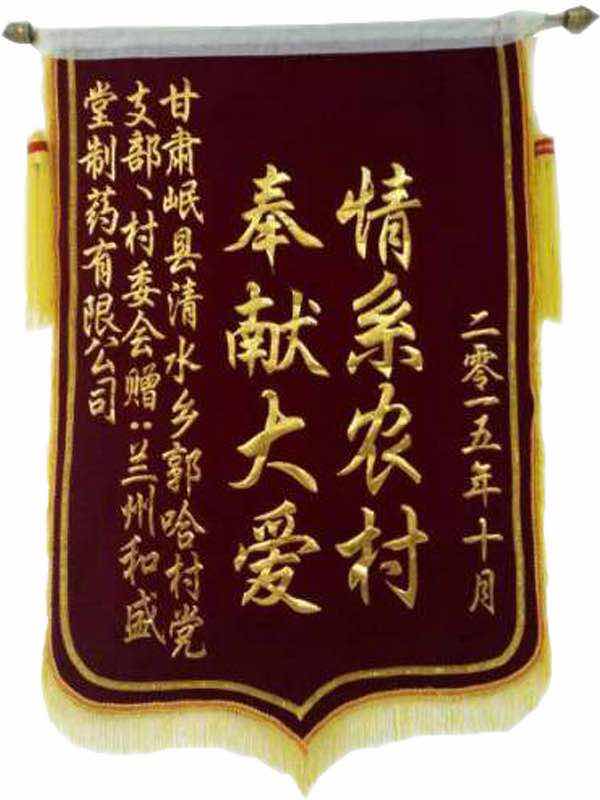 二零一五年十月
情系农村
奉献大爱
甘肃岷县清水乡郭哈村党
支部、村委会赠:兰州和盛
堂制药有限公司